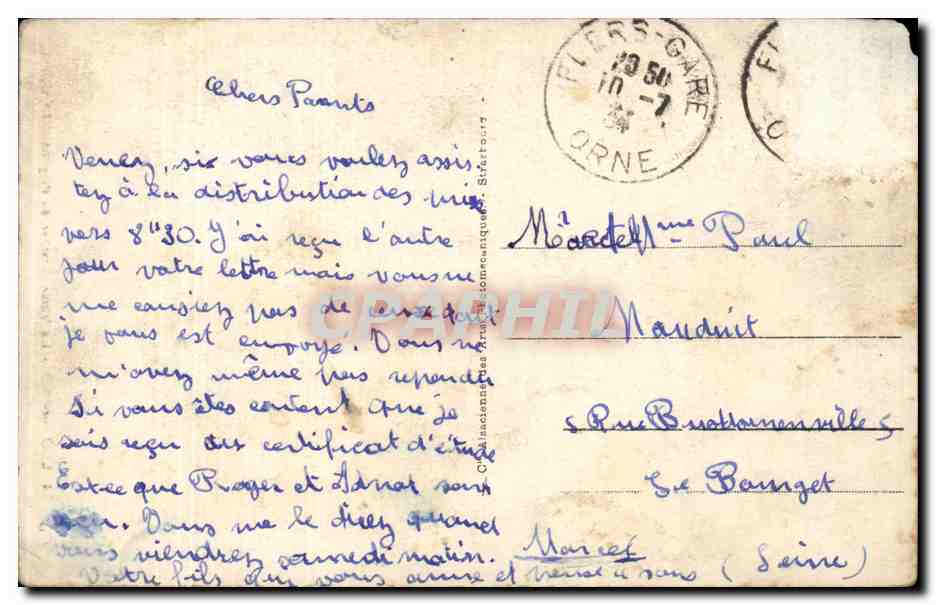 Chers Parents
Venez, six vous voulez assis-
tez à la distribution des prix
vers 8"30. J'ai reçu l'autre
jour votre lettre mais vous ne
me causiez pas de ceux dont
je vous est envoyé. Vous ne
m'avez même pas repondu
Si vous êtes content que je
sois reçu au certificat d'étude
Est-ce que Roger et sont
Vous me le direz quand
vous viendrez samedi matin.
Votre fils qui vous aime et pense à vous
Marcel
Cie Alsacienne des Arts Photomécaniques, Strasbourg
FLERS-GARE
19 50
10 -7
34
ORNE
FL
O
Mr et Mme Paul
Mauduit
5 Rue 5
Le Bourget
(Seine)
CPAPHIL